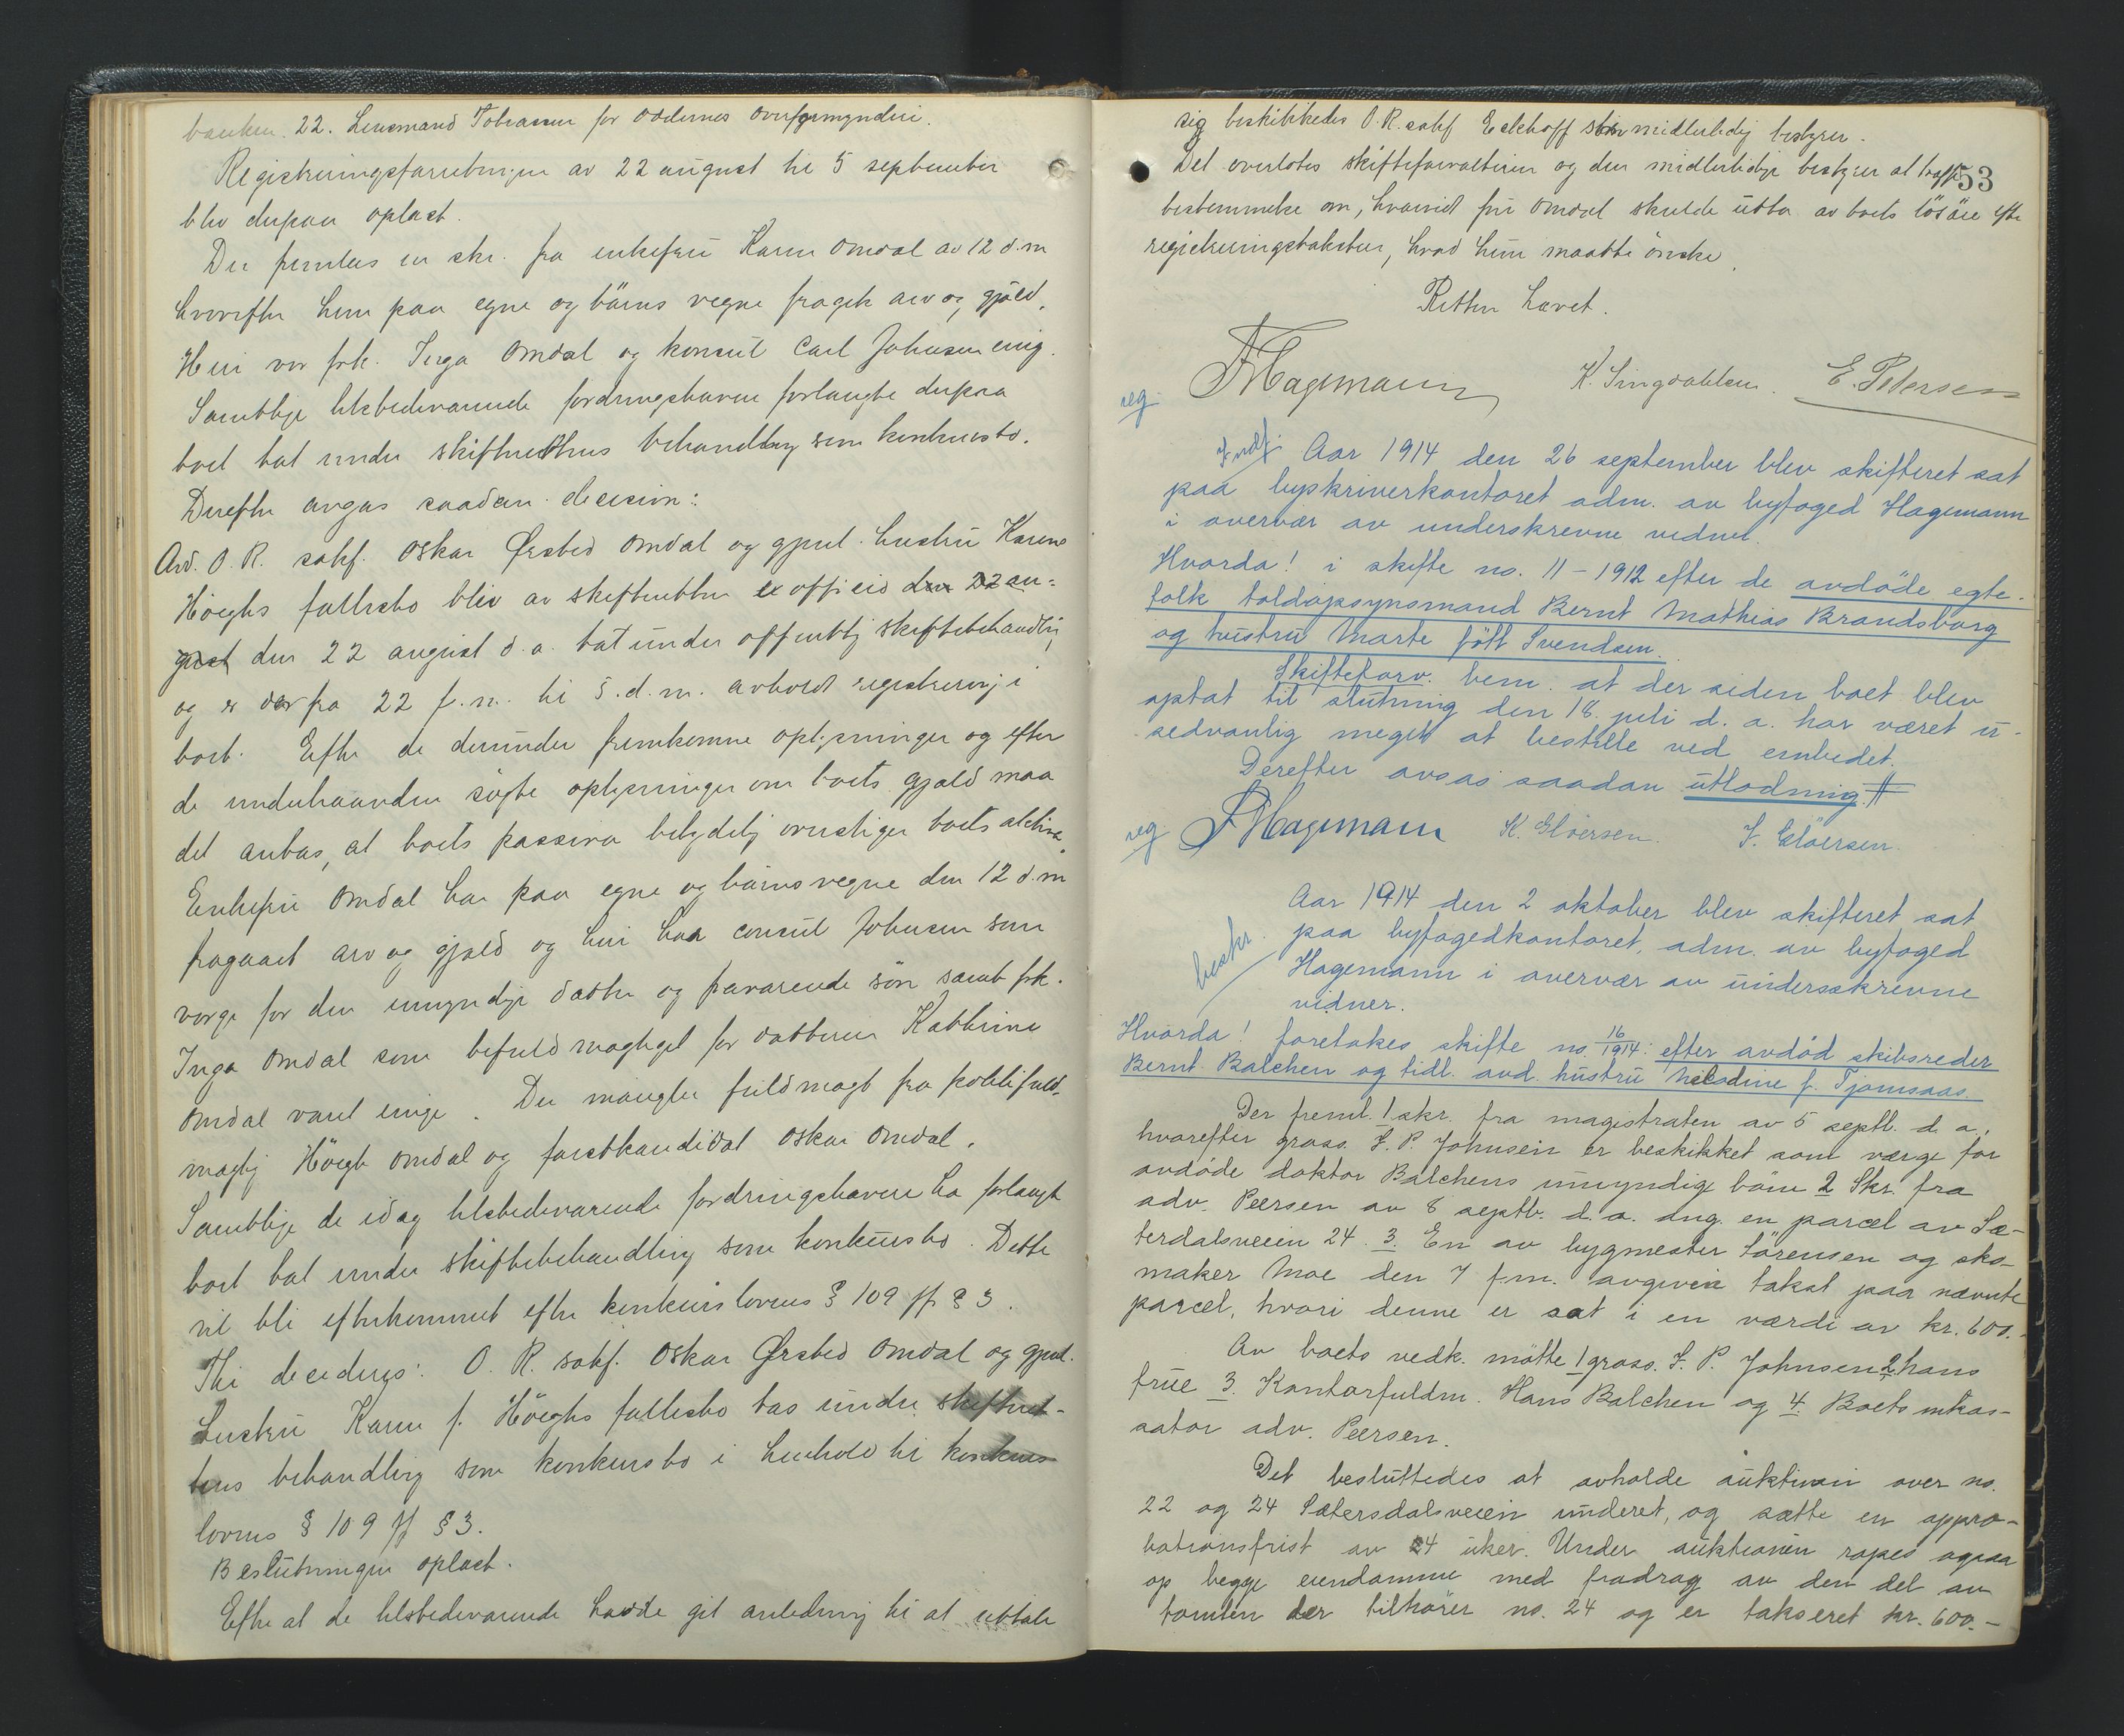 banken. 22. Lensmand Tobiassen for Oddernes overformynderi.
Registreringsforretningen av 22 august til 5 september
blev derpaa oplæst.
Der fremlaes en skr. fra enkefru Karen Omdal av 12 d.m
hvorefter hun paa egne og børns vegne fragik arv og gjæld.
Heri var frk. Inga Omdal og konsul Carl Johnsen enig.
Samtlige tilstedeværende fordringshavere forlangte derpaa
boet tat under skifterettens behandling som konkursbo.
Derefter avgas saadan decision:
Avd. O. R. sakf. Oskar Ørsted Omdal og gjenl. hustru Karen
Höeghs fællesbo blev av skifteretten ex officio den 22 au=
gust den 22 august d.a. tat under offentlig skiftebehandling
og er der fra 22 f.m. til 5. d.m. avholdt registrering i
boet. Efter de derunder fremkomne oplysninger og efter
de underhaanden søgte oplysninger om boets gjæld maa
det antas, at boets passiva betydelig overstiger boets aktiva.
Enkefru Omdal har paa egne og børns vegne den 12 d.m
fragaaet arv og gjæld og heri har consul Johnsen som
verge for den umyndige datter og fraværende søn samt frk.
Inga Omdal som befuldmægtiget for datteren Kathrine
Omdal været enige. Der mangler fuldmagt fra politifuld-
mægtig Höegh Omdal og forstkandidat Oskar Omdal.
Samtlige de idag tilstedeværende fordringshavere ha forlangt
boet tat under skiftebehandling som konkursbo. Dette
vil bli efterkommet efter konkurslovens § 109 jf § 3.
Thi decideres: O. R. sakf. Oskar Ørsted Omdal og gjenl.
hustru Karen f. Höeghs fællesbo tas under skifteret-
tens behandling som konkursbo i henhold til konkurs-
lovens § 109 jf § 3.
Beslutningen oplæst.
Efter at de tilstedeværende hadde git anledning til at uttale
sig beskikkedes O.R.sakf Eckhoff som midlertidig bestyrer.
Det overlotes skifteforvalteren og den midlertidige bestyrer at træffe
53
bestemmelse om, hvorvidt fru Omdal skulde utta av boets løsøre efter
registreringstaksten, hvad hun maatte ønske.
Retten hævet.
reg. Hagemann K. Singdahlsen. E. Pedersen
Aar 1914 den 26 september blev skifteret sat
paa byskriverkontoret adm. av byfoged Hagemann
i overvær av underskrevne vidner.
Hvorda! i skifte no. 11 – 1912 efter de avdøde egte-
folk toldopsynsmand Bernt Mathias Brandsborg
og hustru Marte født Svendsen.
Skifteforv. bem. at der siden boet blev
optat til slutning den 18. juli d. a. har været u-
sedvanlig meget at bestille ved embedet.
Derefter avsas saadan utlodning #
reg. Hagemann K. Gløersen. J. Gløersen.
Aar 1914 den 2 oktober blev skifteret sat
beskr. paa byfogedkontoret, adm. av byfoged
Hagemann i overvær av undersskrevne
vidner.
Hvorda! foretokes skifte no. 16/1914: efter avdød skibsreder
Bernt Balchen og tidl. avd. hustru Nilsdine f. Tjomsaas.
Der freml. 1 skr. fra magistraten av 5 septb. d. a.,
hvorefter gross. J. P. Johnsen er beskikket som værge for
avdøde doktor Balchens umyndige børn 2 Skr. fra
adv. Peersen av 8 septb. d.a. ang. en parcel av Sæ-
terdalsveien 24. 3. En av bygmester Sørensen og sko-
maker Moe den 7 f.m. avgiven takst paa nævnte
parcel, hvori denne er sat i en værdi av kr. 600.-
Av boets vedk. møtte 1 gross. J. P. Johnsen 2 hans
frue 3. Kontorfuldm. Hans Balchen og 4. Boets inkas-
sator adv. Peersen.
Det besluttedes at avholde auktion over no.
22 og 24 Sætersdalsveien underet, og sætte en appro-
bationsfrist av 4 uker. Under auktionen ropes ogsaa
op begge eiendomme med fradrag av den del av
tomten der tilhører no. 24 og er takseret kr. 600.-